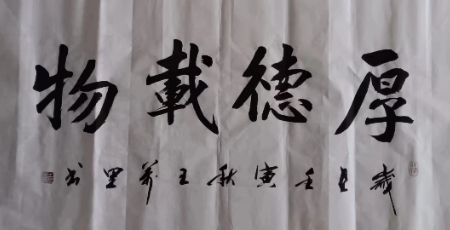 厚德載物
歲在壬寅秋王萬里书